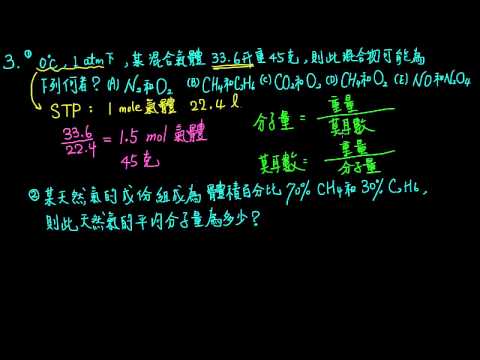 3. ① 0°C, 1 atm下, 某混合氣體 33.6升重45克, 則此混合物可能為
下列何者? (A) N₂和O₂ (B) CH₄和C₂H₆ (C) CO₂和O₂ (D) CH₄和O₂ (E) NO和N₂O₄
STP: 1 mole氣體 22.4 ℓ
33.6/22.4 = 1.5 mol 氣體
45克
分子量 = 重量/莫耳數
莫耳數 = 重量/分子量
② 某天然氣的成份組成為 體積百分比 70% CH₄和30% C₂H₆,
則此天然氣的平均分子量為多少?